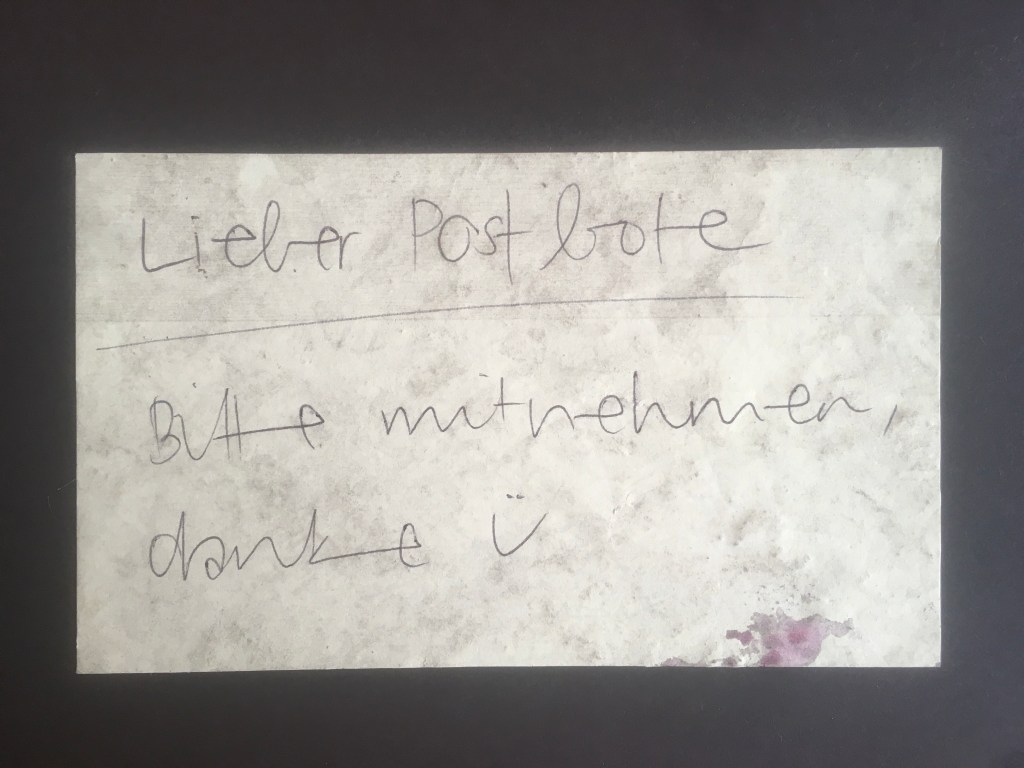 Lieber Postbote
Bitte mitnehmen,
danke ü